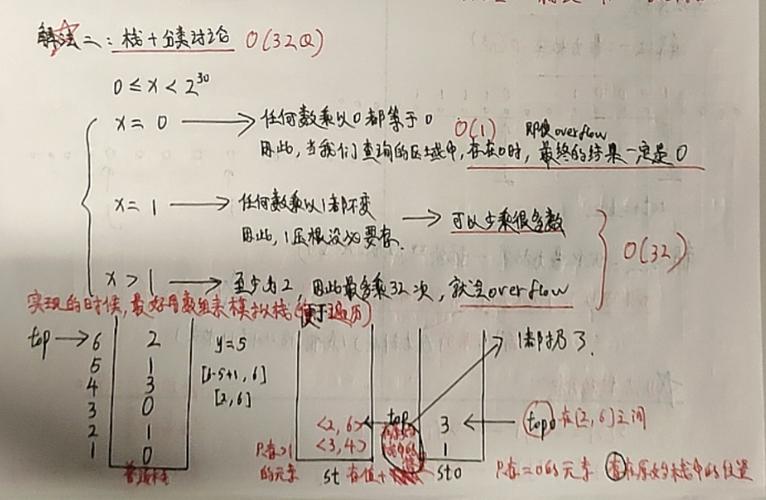 解法二：栈+分类讨论 O(32Q)
0 ≤ x < 2^30
x = 0 → 任何数乘以0都等于0 O(1) 即使overflow
因此，当我们查询的区域中，存在0时，最终的结果一定是0
x = 1 → 任何数乘以1都不变 → 可以少乘很多数
因此，1压根没必要存. O(32)
x > 1 → 至少为2 因此最多乘32次，就会overflow
实现的时候，最好用数组来模拟栈(便于遍历)
top → 6 2 y=5 1都扔了.
5 1 [6-5+1, 6]
4 3 [2,6]
3 0 <2,6> ← top 3 ← top0在[2,6]之间
2 1 <3,4>
1 0 1
普通栈 只存>1的元素 st 存值+ st0 只存=0的元素 存在原始栈中的位置